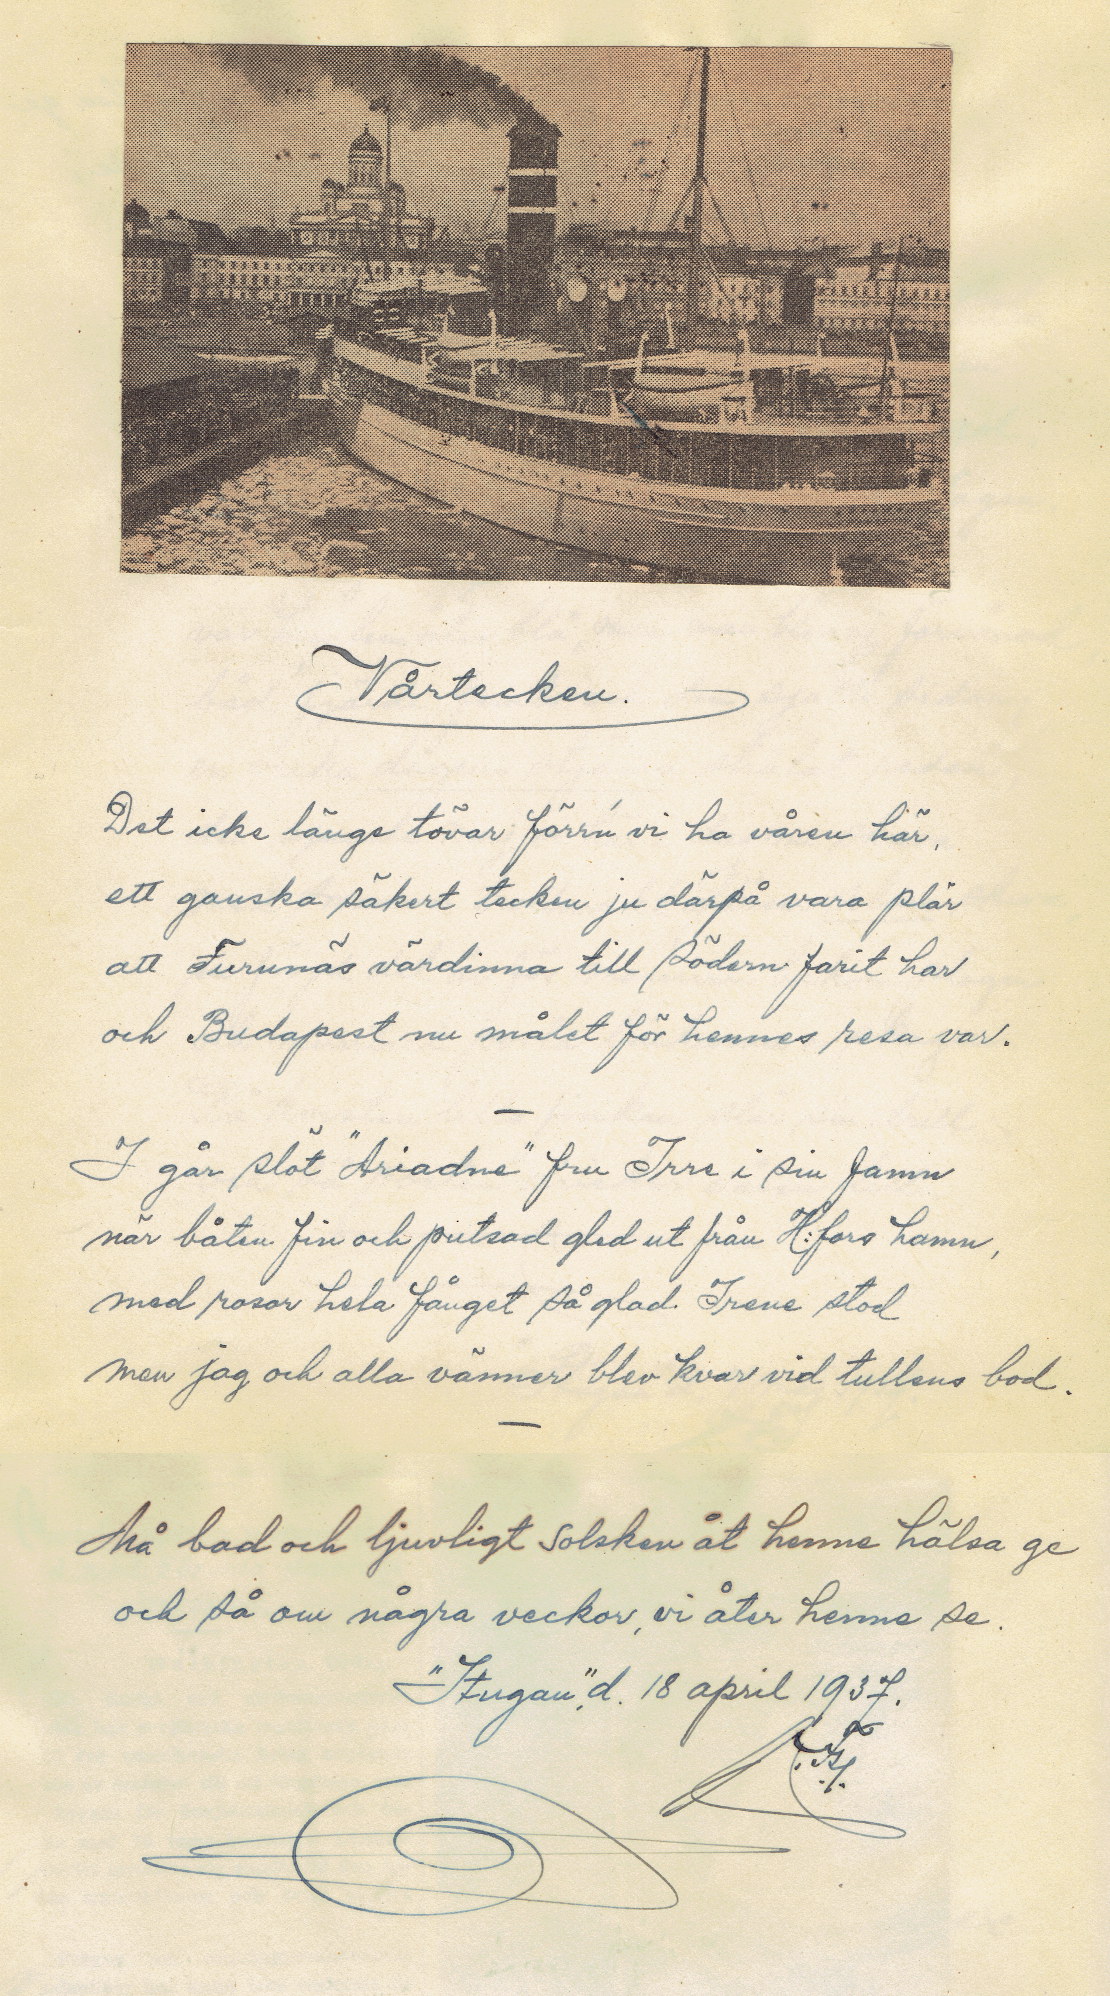 Vårtecken.
Det icke länge tövar förrn' vi ha våren här,
ett ganska säkert tecken ju därpå vara plär
att Furunäs värdinna till Södern farit har
och Budapest nu målet för hennes resa var.
—
I går slöt "Ariadne" fru Irre i sin famn
när båten fin och putsad gled ut från H:fors hamn,
med rosor hela fånget så glad Irene stod
men jag och alla vänner blev kvar vid tullens bod.
—
Må bad och ljuvligt solsken åt henne hälsa ge
och så om några veckor, vi åter henne se.
"Stugan", d. 18 april 1937.